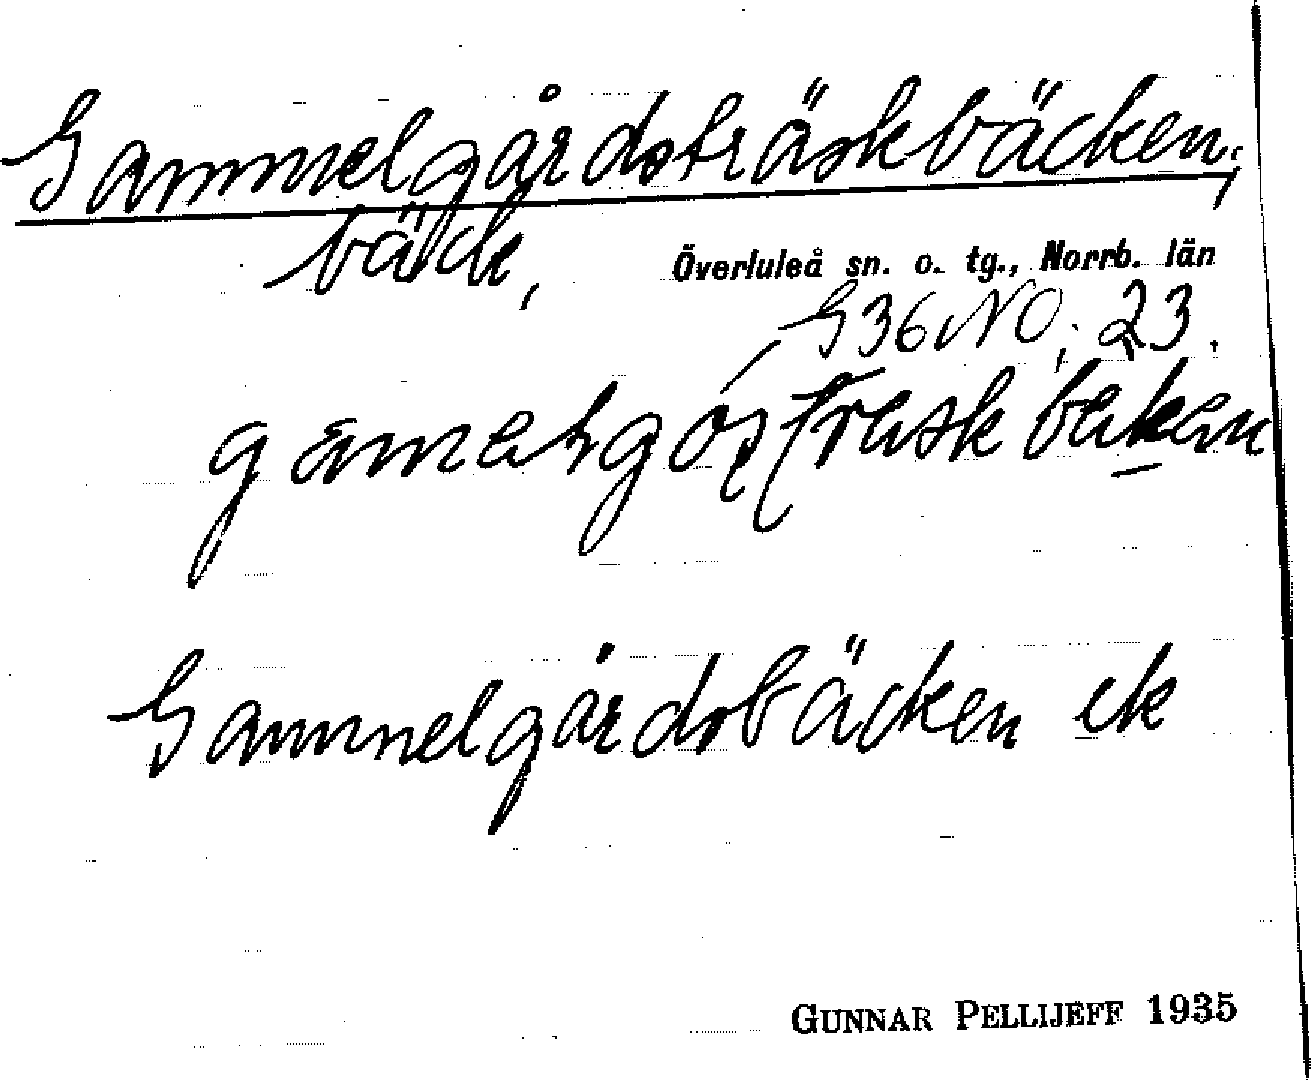 Gammelgårdsträskbäcken,
bäck,
Överluleå sn. o. tg., Norrb. län
G36NO; 23.
Gammelgårdsbäcken ek
GUNNAR PELLIJEFF 1935